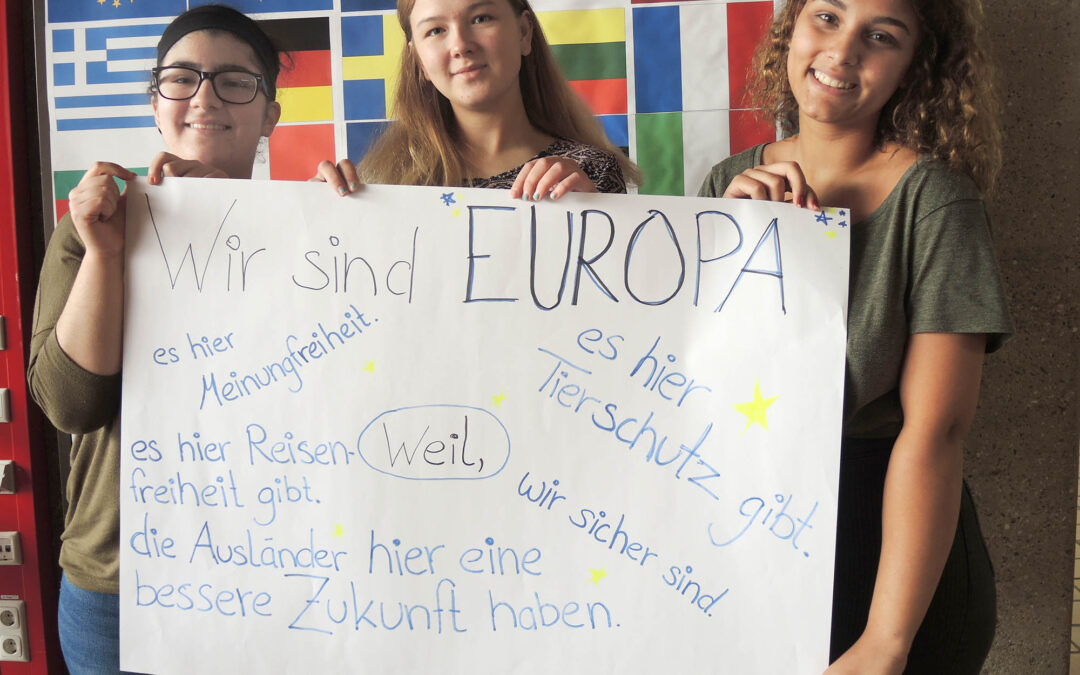 Wir sind EUROPA
es hier
Meinungfreiheit.
es hier
Tierschutz gibt.
Weil,
es hier Reisen-
freiheit gibt.
wir sicher sind.
die Ausländer hier eine
bessere Zukunft haben.